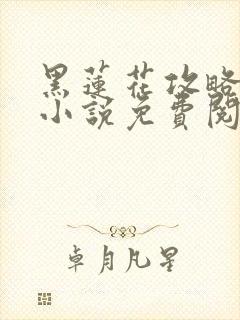 黑蓮花攻略
小說免費閱
卓月凡星